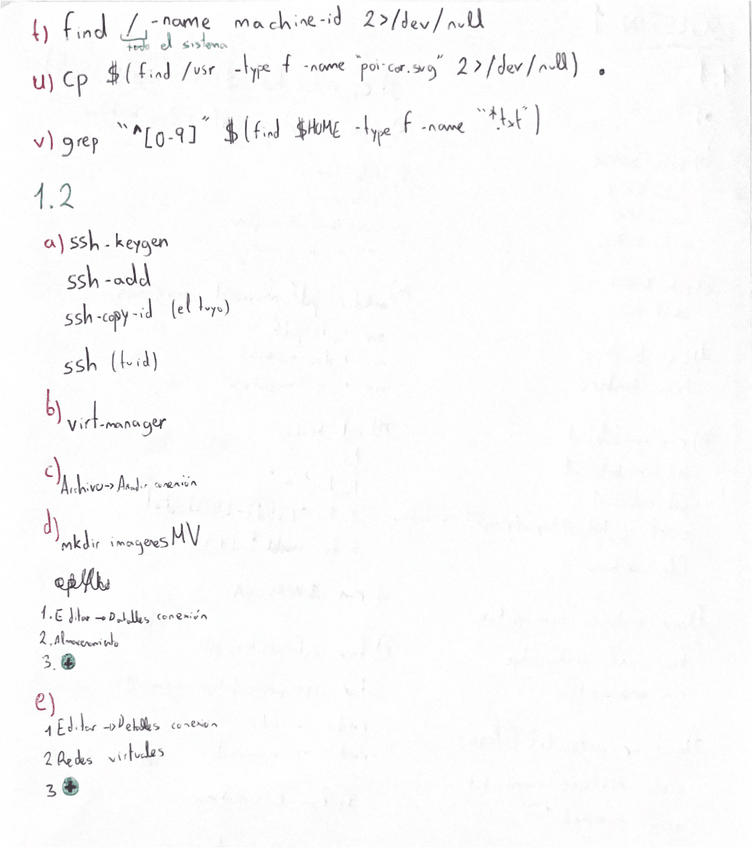 t) find / -name machine-id 2>/dev/null
todo el sistema
u) Cp $(find /usr -type f -name "poi-car.svg" 2>/dev/null) .
v) grep "^[0-9]" $(find $HOME -type f -name "*.txt")
1.2
a) ssh-keygen
ssh-add
ssh-copy-id (el tuyo)
ssh (tu id)
b) virt-manager
c) Archivo->Añadir conexión
d) mkdir imagenesMV
1. Editar -> Detalles conexión
2. Almacenamiento
3. +
e)
1 Editar -> Detalles conexion
2 Redes virtuales
3 +